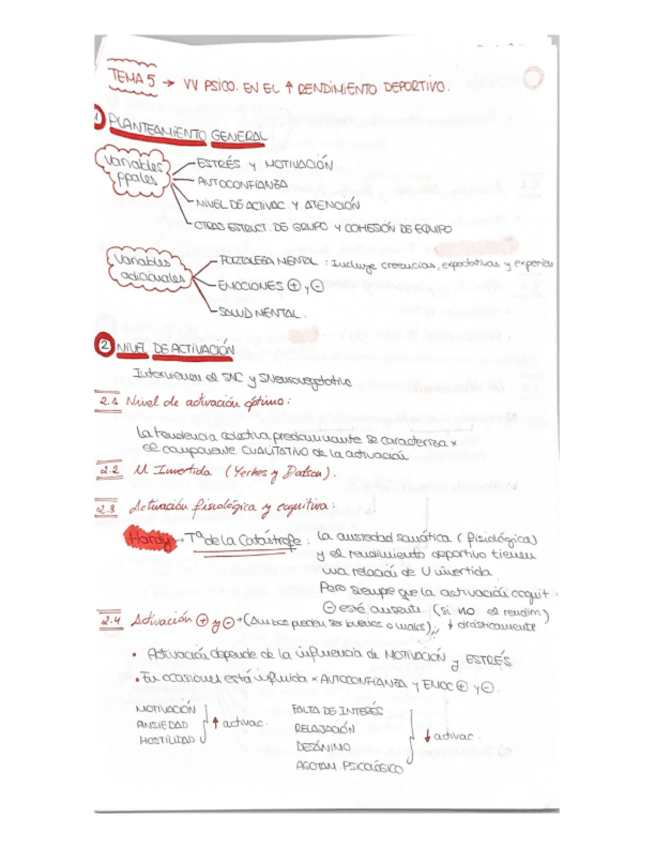 TEMA 5 → VV PSICO. EN EL ↑ RENDIMIENTO DEPORTIVO.
1 PLANTEAMIENTO GENERAL
Variables ppales
ESTRÉS Y MOTIVACIÓN.
AUTOCONFIANZA
NIVEL DE ACTIVAC. Y ATENCIÓN
OTRAS ESTRUCT. DE GRUPO Y COHESIÓN DE EQUIPO
Variables adicionales
FORTALEZA MENTAL : Incluye creencias, expectativas y experien
EMOCIONES ⊕ y ⊖
SALUD MENTAL.
2 NIVEL DE ACTIVACIÓN
Intervienen el SNC y SNeurovegetativo
2.1 Nivel de activación óptimo:
La tendencia colectiva predominante se caracteriza x
el componente CUALITATIVO de la activación
2.2 U Invertida (Yerkes y Dodson).
2.3 Activación fisiológica y cognitiva:
Hardy → Tª de la Catástrofe : la ansiedad somática (fisiológica)
y el rendimiento deportivo tienen
una relación de U invertida.
Pero siempre que la activación cognit.
⊖ esté ausente (si no el rendim)
↓ drásticamente
2.4 Activación ⊕ y ⊖ → (Ambas pueden ser buenas o malas)
• Activación depende de la influencia de MOTIVACIÓN y ESTRÉS
• En ocasiones está influida x AUTOCONFIANZA Y EMOC ⊕ y ⊖.
MOTIVACIÓN
ANSIEDAD
HOSTILIDAD
↑ activac.
FALTA DE INTERÉS
RELAJACIÓN
DESÁNIMO
AGOTAM. PSICOLÓGICO
↓ activac.